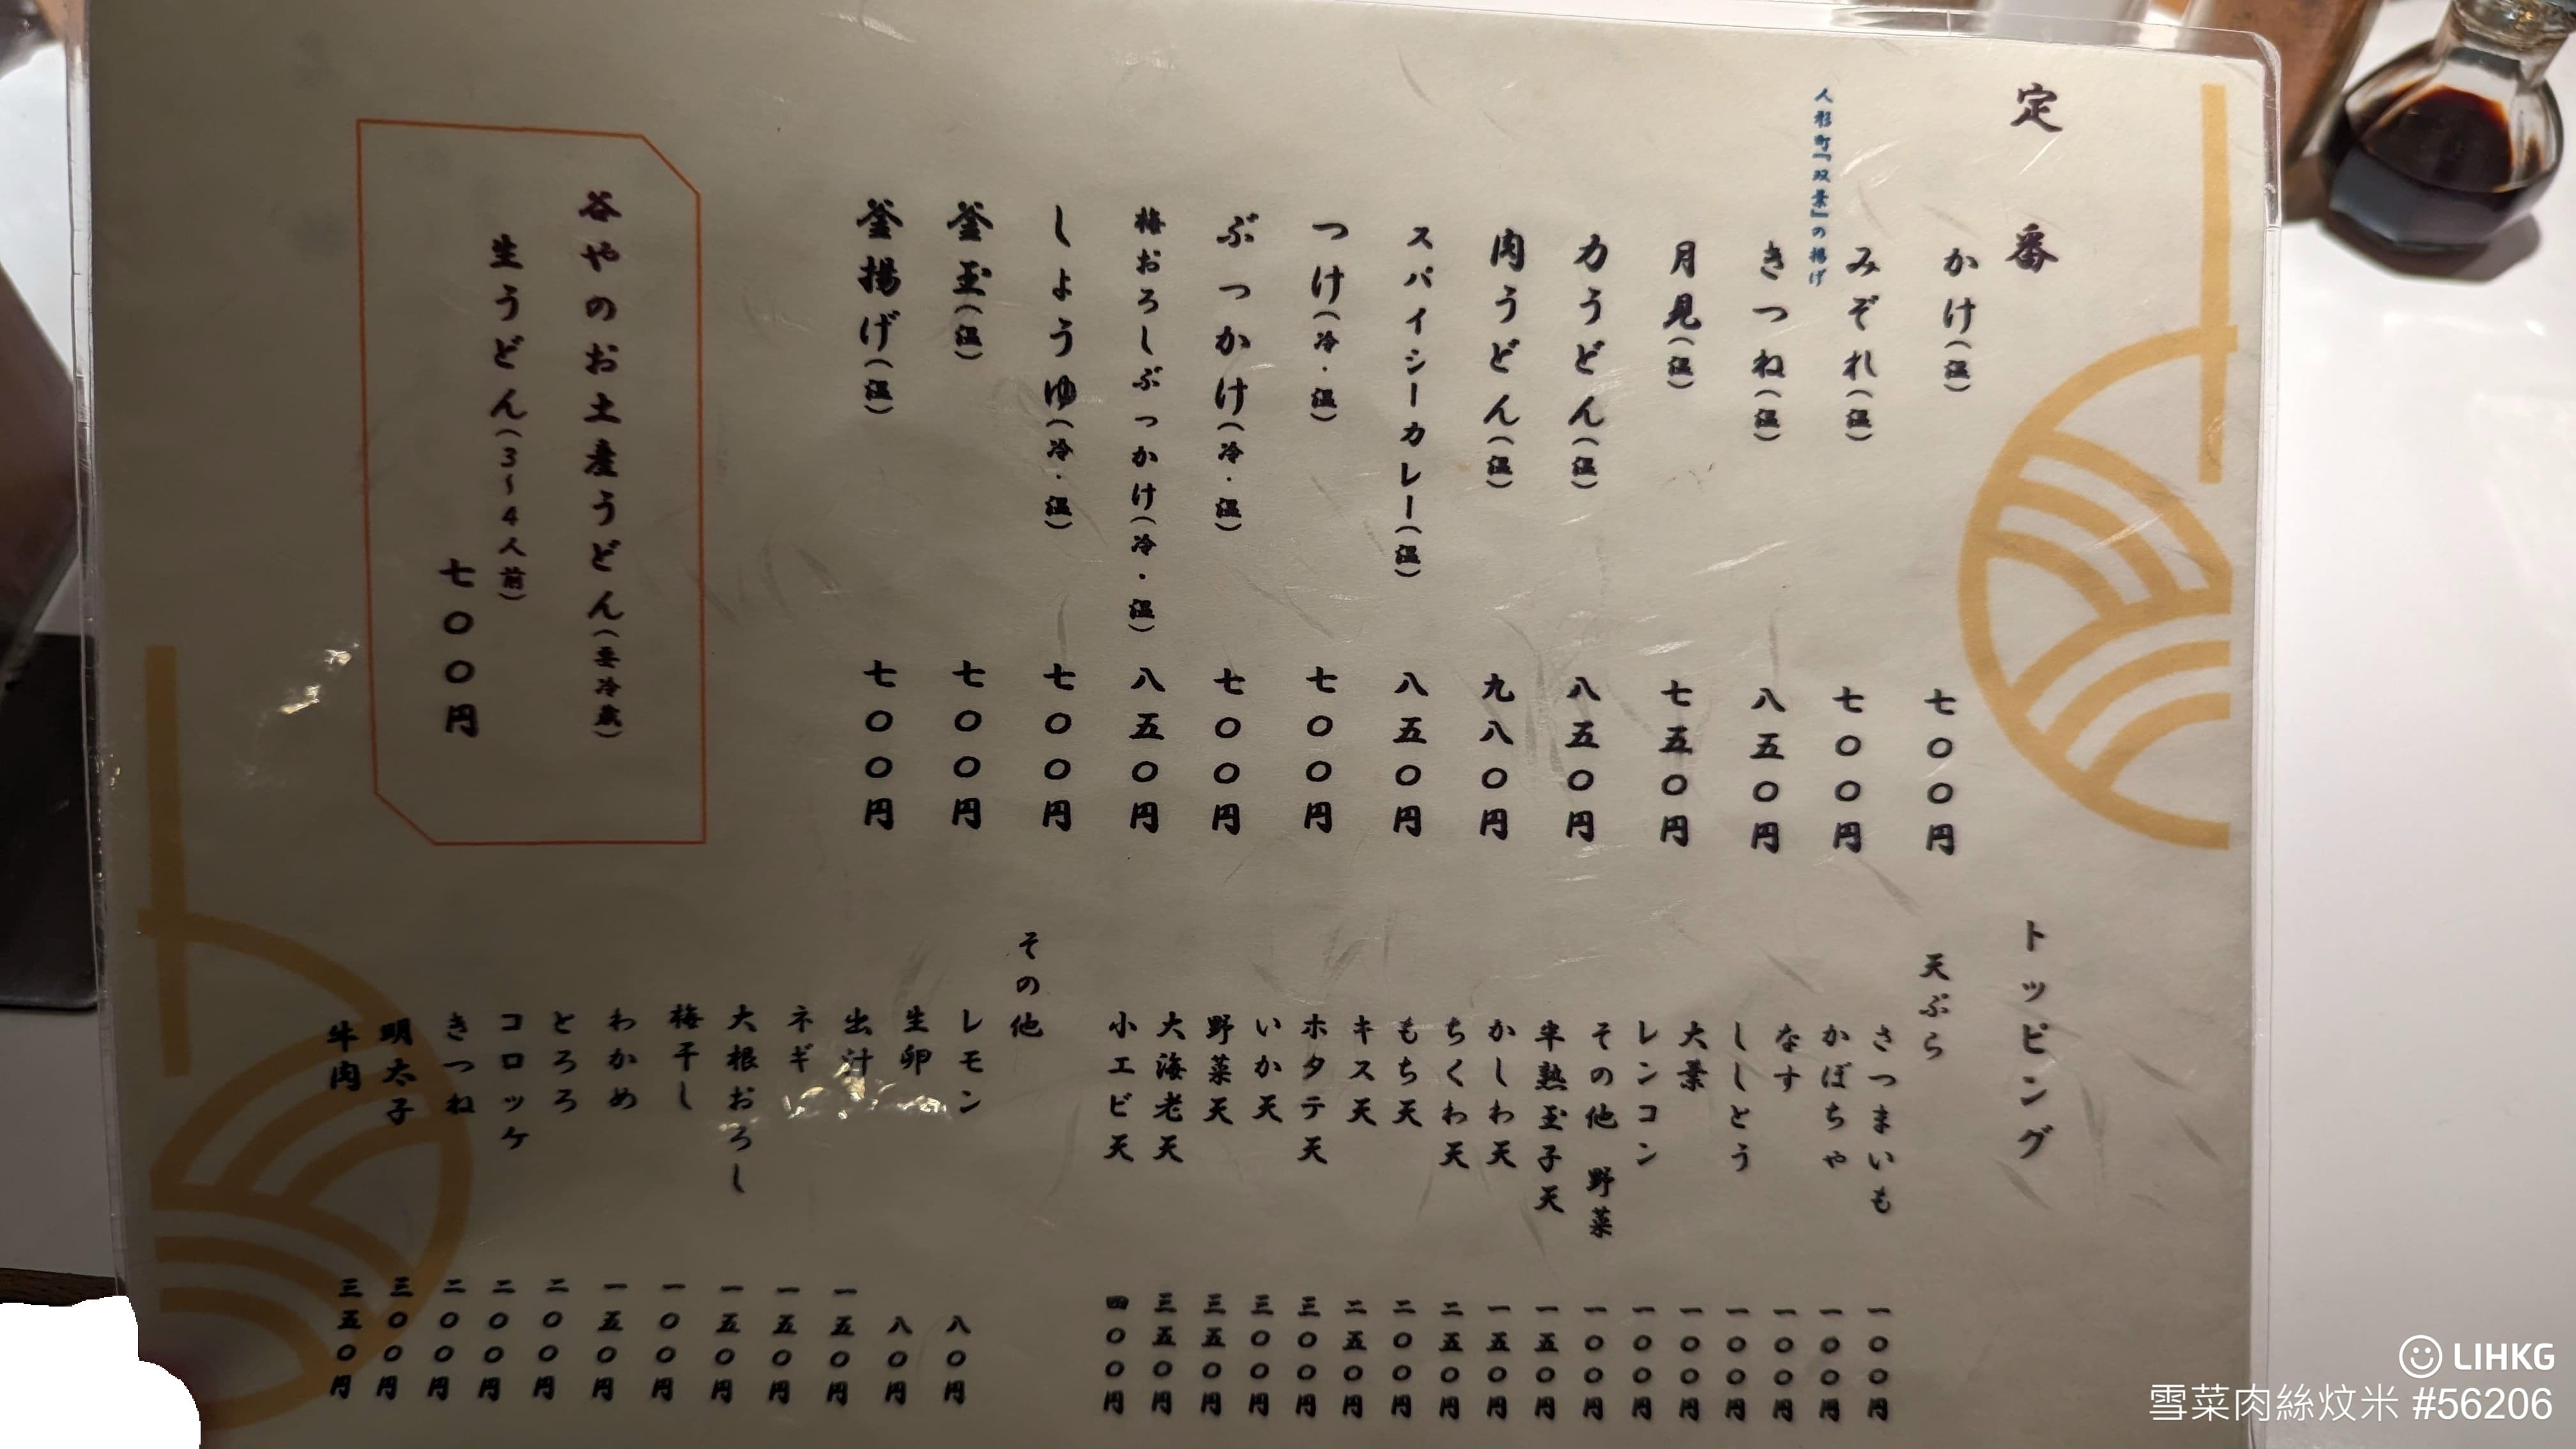 定番
かけ(温) 七〇〇円
みぞれ(温) 七〇〇円
人形町「双葉」の揚げ
きつね(温) 八五〇円
月見(温) 七五〇円
力うどん(温) 八五〇円
肉うどん(温) 九八〇円
スパイシーカレー(温) 八五〇円
つけ(冷・温) 七〇〇円
ぶっかけ(冷・温) 七〇〇円
梅おろしぶっかけ(冷・温) 八五〇円
しょうゆ(冷・温) 七〇〇円
釜玉(温) 七〇〇円
釜揚げ(温) 七〇〇円
谷やのお土産うどん(要冷蔵)
生うどん(3～4人前)
七〇〇円
トッピング
天ぷら
さつまいも 一〇〇円
かぼちゃ 一〇〇円
なす 一〇〇円
ししとう 一〇〇円
大葉 一〇〇円
レンコン 一〇〇円
その他 野菜 一〇〇円
半熟玉子天 一五〇円
かしわ天 一五〇円
ちくわ天 二五〇円
もち天 二〇〇円
キス天 二五〇円
ホタテ天 三〇〇円
いか天 三〇〇円
野菜天 三五〇円
大海老天 三五〇円
小エビ天 四〇〇円
その他
レモン 八〇円
生卵 八〇円
出汁 一五〇円
ネギ 一五〇円
大根おろし 一五〇円
梅干し 一〇〇円
わかめ 一五〇円
とろろ 二〇〇円
コロッケ 二〇〇円
きつね 二〇〇円
明太子 三〇〇円
牛肉 三五〇円
LIHKG
雪菜肉絲炆米 #56206